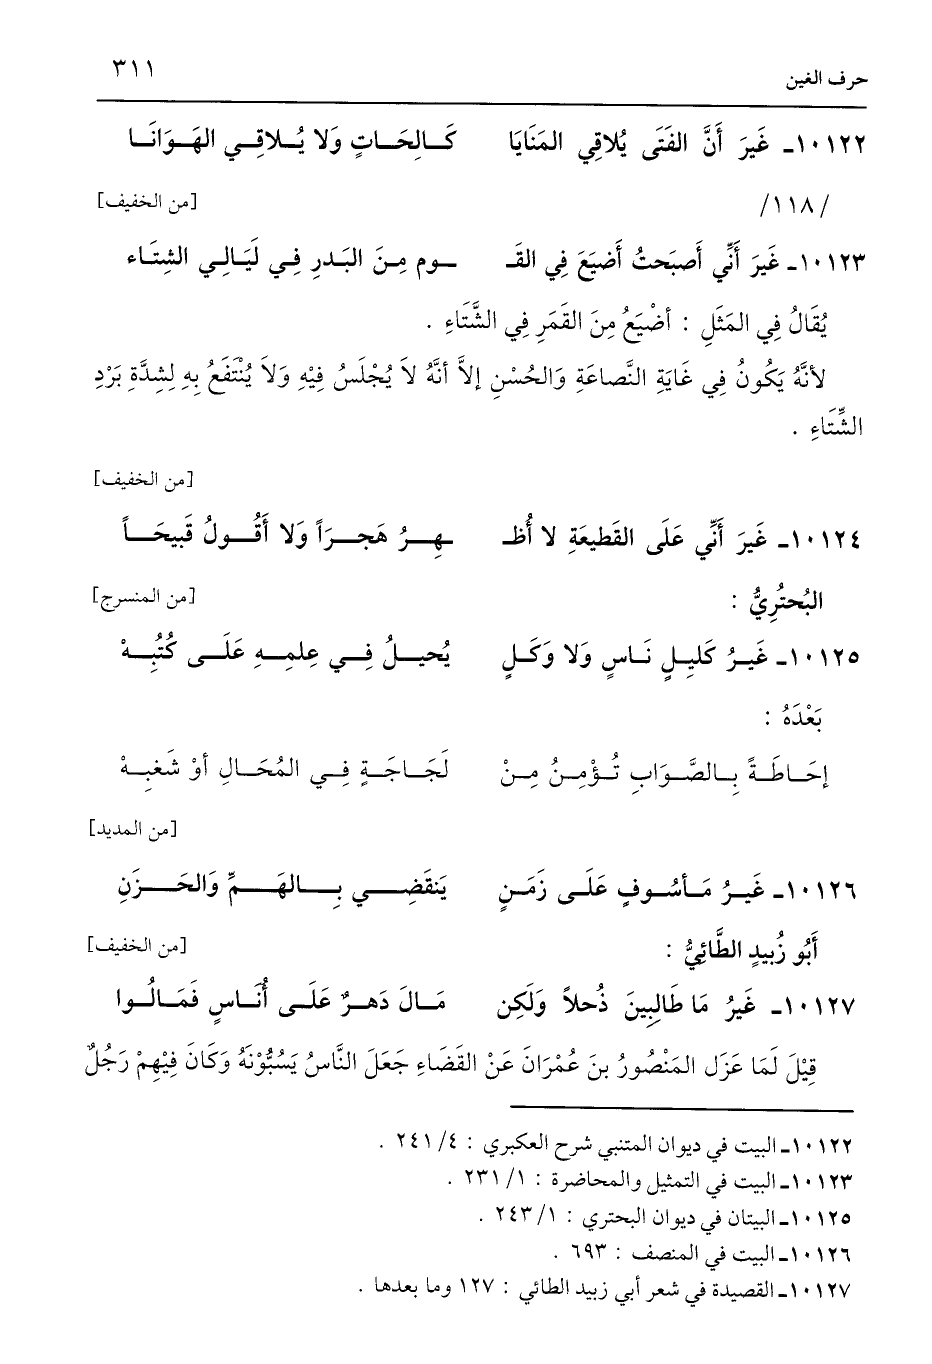 حرف الغين ٣١١
١٠١٢٢ـ غَيرَ أَنَّ الفَتَى يُلاقِي المَنَايَا كَـالِحَاتٍ وَلا يُـلاقِـي الهَـوَانَـا
/١١٨/ [من الخفيف]
١٠١٢٣ـ غَيرَ أَنِّي أَصبَحتُ أَضيَعَ فِي القَـ ـوم مِـنَ البَـدرِ فِـي لَيَـالِـي الشِتَـاء
يُقَالُ فِي المَثَلِ : أضْيَعُ مِنَ القَمَرِ فِي الشَّتَاءِ .
لأنَّهُ يَكُونُ فِي غَايَةِ النَّصاعَةِ وَالحُسْنِ إلاَّ أنَّهُ لاَ يُجْلَسُ فِيْهِ وَلاَ يُنْتَفَعُ بِهِ لِشِدَّةِ بَرْدِ
الشِّتَاءِ .
[من الخفيف]
١٠١٢٤ـ غَيرَ أَنِّي عَلَى القَطيعَةِ لا أُظـ ـهِـرُ هَجـرَاً وَلا أَقُـولُ قَبِيحَـاً
البُحتُرِيُّ : [من المنسرح]
١٠١٢٥ـ غَيـرُ كَليِـلٍ نَـاسٍ وَلا وَكَـلٍ يُحيـلُ فِـي عِلمِـهِ عَلَـى كُتُبِـهْ
بَعْدَهُ :
إحَـاطَـةً بِـالصَّـوَابِ تُـؤْمِـنُ مِـنْ لَجَـاجَـةٍ فِـي المُحَـالِ أوْ شَغبِـهْ
[من المديد]
١٠١٢٦ـ غَيـرُ مَـأسُـوفٍ عَلَـى زَمَـنٍ يَنقَضِـي بِـالهَـمِّ وَالحَـزَنِ
أَبُو زُبيدٍ الطَّائِيُّ : [من الخفيف]
١٠١٢٧ـ غَيرُ مَا طَالِبِينَ ذُحلاً وَلَكِن مَـالَ دَهـرٌ عَلَـى أُنَـاسٍ فَمَـالُـوا
قِيْلَ لَمَا عَزَل المَنْصُورُ بنَ عُمْرَانَ عَنْ القَضَاءِ جَعَلَ النَّاسُ يَسُبُّوْنَهُ وَكَانَ فِيْهِمْ رَجُلٌ
١٠١٢٢ـ البيت في ديوان المتنبي شرح العكبري : ٤/ ٢٤١ .
١٠١٢٣ـ البيت في التمثيل والمحاضرة : ١/ ٢٣١ .
١٠١٢٥ـ البيتان في ديوان البحتري : ١/ ٢٤٣ .
١٠١٢٦ـ البيت في المنصف : ٦٩٣ .
١٠١٢٧ـ القصيدة في شعر أبي زبيد الطائي : ١٢٧ وما بعدها .